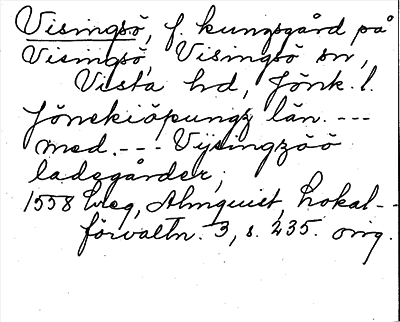 Visingsö, f. kungsgård på
Visingsö, Visingsö sn,
Vista hd, Jönk. l.
Jönekiöpungz län. ---
med. --- Vysingzöö
ladegårder;
1558 Almquist, Lokal-
förvaltn. 3, s. 235. orig.